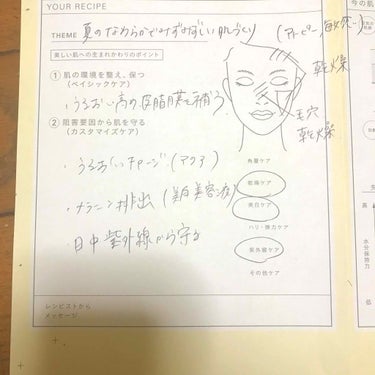 YOUR RECIPE
THEME 夏のなめらかでみずみずしい肌づくり (アトピー,敏感)
美しい肌への生まれかわりのポイント
① 肌の環境を整え、保つ
(ベイシックケア)
うるおい高め皮脂膜を補う
② 阻害要因から肌を守る
(カスタマイズケア)
・うるおいチャージ(アクア)
・メラニン排出(美白美容液)
・日中紫外線から守る
乾燥
毛穴
乾燥
角層ケア
乾燥ケア
美白ケア
ハリ・弾力ケア
紫外線ケア
その他ケア
レシピストから
メッセージ
今の肌
高
水分保持力
低